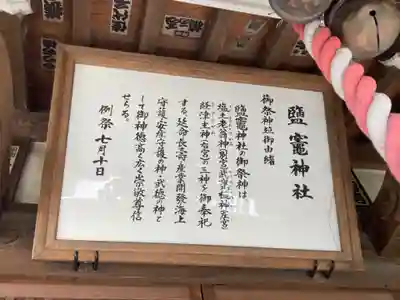 鹽竈神社
御祭神並御由緒
鹽竈神社の御祭神は
塩土老翁神(別宮)武甕槌神(左宮)
経津主神(右宮)の三神を御奉祀
する、延命長寿・産業開發海上
守護・安産守護の神・武徳の神と
して御神徳高く厚く崇敬尊信
せらる。
例祭 七月十日